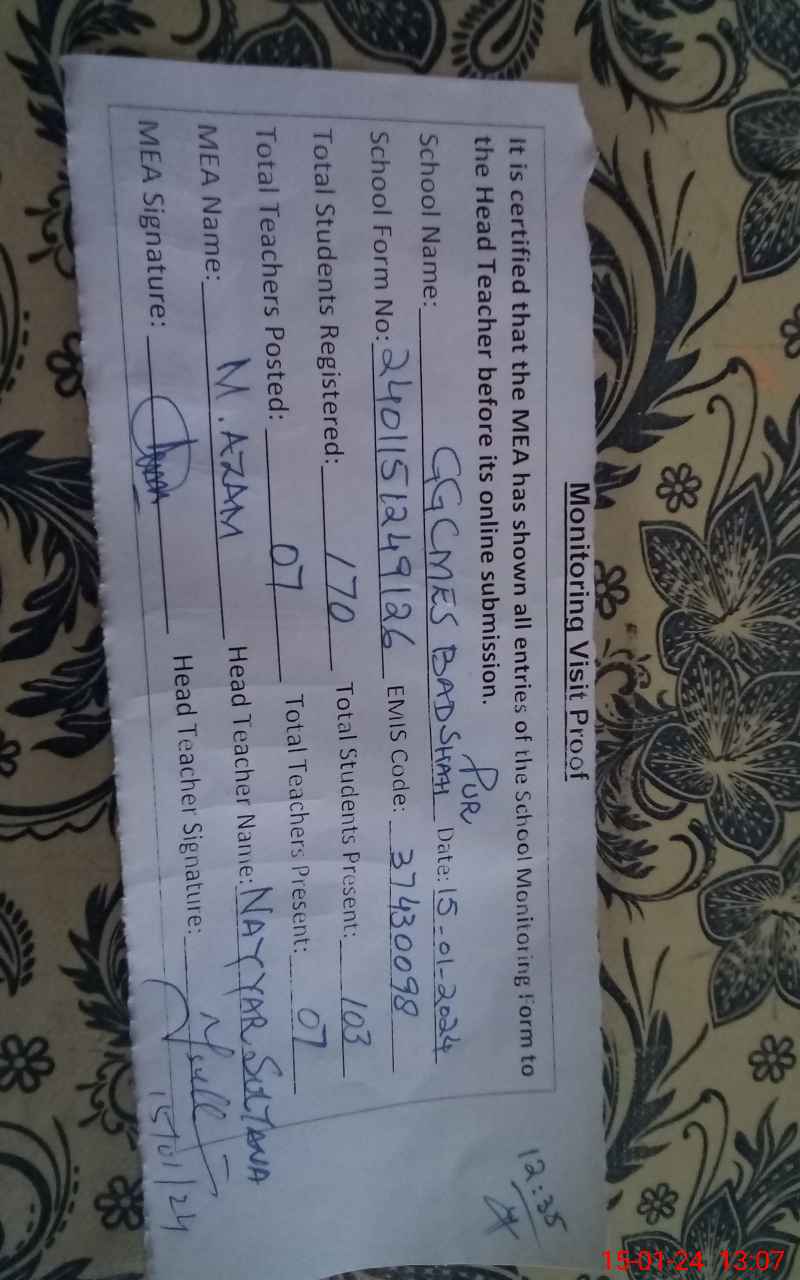 Monitoring Visit Proof
It is certified that the MEA has shown all entries of the School Monitoring Form to
the Head Teacher before its online submission.
School Name: GGCMES BADSHAH PUR Date: 15-01-2024
School Form No: 2401151249126 EMIS Code: 37430098
Total Students Registered: 170 Total Students Present: 103
Total Teachers Posted: 07 Total Teachers Present: 07
MEA Name: M. AZAM Head Teacher Name: NAYYAR SULTANA
MEA Signature: Head Teacher Signature:
15/01/24
12:35
15-01-24 13:07